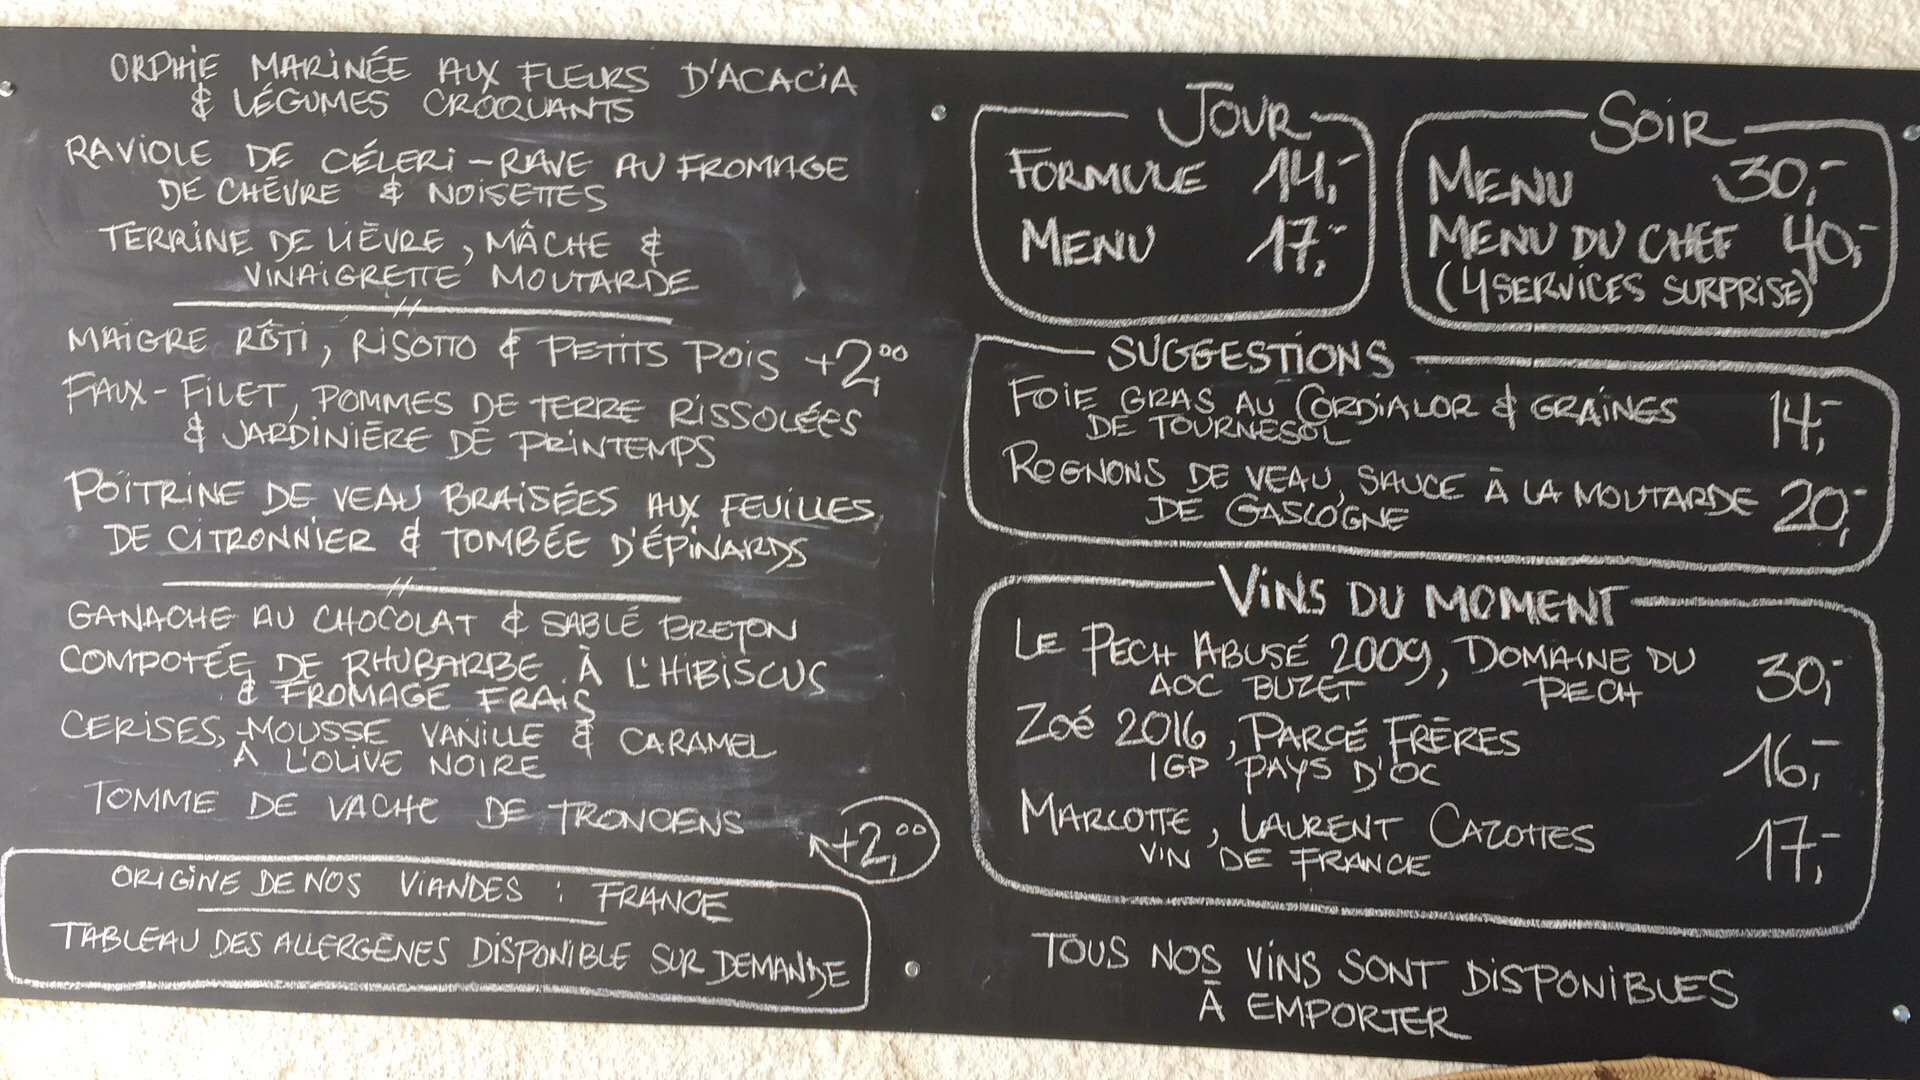 ORPHIE MARINÉE AUX FLEURS D'ACACIA
& LÉGUMES CROQUANTS
RAVIOLE DE CÉLERI-RAVE AU FROMAGE
DE CHÈVRE & NOISETTES
TERRINE DE LIÈVRE, MÂCHE &
VINAIGRETTE MOUTARDE
MAIGRE RÔTI, RISOTTO & PETITS POIS +2,00
FAUX-FILET, POMMES DE TERRE RISSOLÉES
& JARDINIÈRE DE PRINTEMPS
POITRINE DE VEAU BRAISÉES AUX FEUILLES
DE CITRONNIER & TOMBÉE D'ÉPINARDS
GANACHE AU CHOCOLAT & SABLÉ BRETON
COMPOTÉE DE RHUBARBE À L'HIBISCUS
& FROMAGE FRAIS
CERISES, MOUSSE VANILLE & CARAMEL
À L'OLIVE NOIRE
TOMME DE VACHE DE TRONCENS
+2,00
ORIGINE DE NOS VIANDES : FRANCE
TABLEAU DES ALLERGÈNES DISPONIBLE SUR DEMANDE
JOUR
FORMULE 14,-
MENU 17,-
SOIR
MENU 30,-
MENU DU CHEF 40,-
(4 SERVICES SURPRISE)
SUGGESTIONS
FOIE GRAS AU CORDIALOR & GRAINES 14,-
DE TOURNESOL
ROGNONS DE VEAU, SAUCE À LA MOUTARDE 20,-
DE GASCOGNE
VINS DU MOMENT
LE PECH ABUSÉ 2009, DOMAINE DU 30,-
AOC BUZET PECH
ZOÉ 2016, PARCÉ FRÈRES 16,-
IGP PAYS D'OC
MARCOTTE, LAURENT CAZOTTES 17,-
VIN DE FRANCE
TOUS NOS VINS SONT DISPONIBLES
À EMPORTER